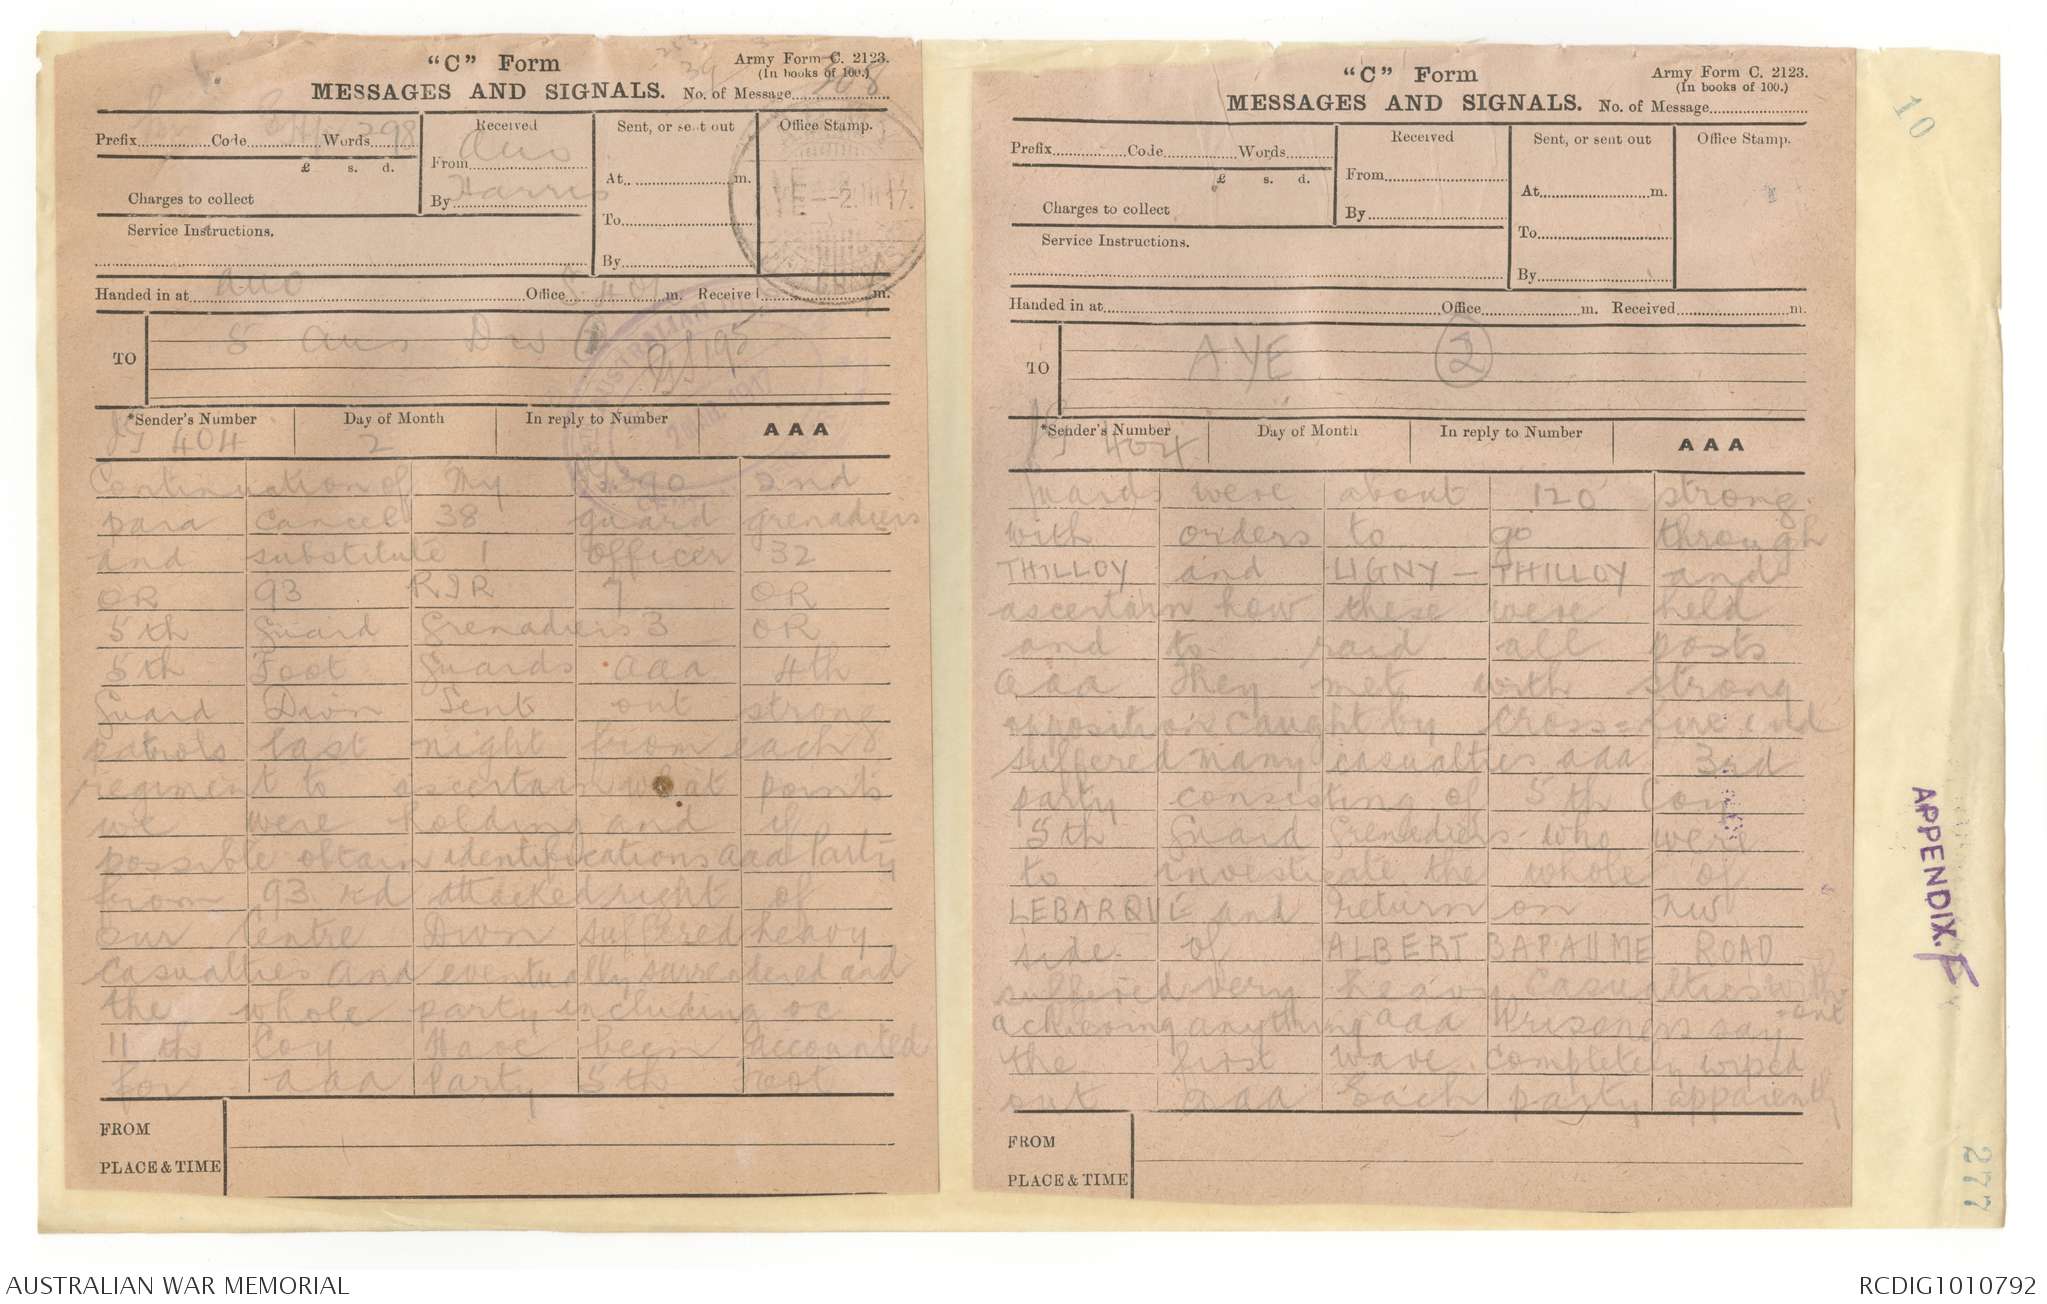 "C" Form
Army Form C. 2123.
(In books of 100.)
MESSAGES AND SIGNALS. No. of Message 308
Prefix Code Words 398
Received
From Auo
By Harris
Sent, or sent out
At m.
To
By
Office Stamp.
£ s. d.
Charges to collect
Service Instructions.
Handed in at Auo Office m. Received m.
TO 5 Aus Div
*Sender's Number Day of Month In reply to Number AAA
IG 404 2
Continuation of my 2nd
para cancel 38 guard grenadiers
and substitute 1 officer 32
OR 93 RIR 7 OR
5th Guard Grenadiers 3 OR
5th Foot Guards aaa 4th
Guard Divn sent out strong
patrols last night from each
regiment to ascertain what points
we were holding and if
possible obtain identifications aaa Party
from 93 rd attacked right of
our Centre Divn suffered heavy
casualties and eventually surrendered and
the whole party including oc
11 th Coy Have been accounted
for aaa Party 5th Foot
FROM
PLACE & TIME
"C" Form
Army Form C. 2123.
(In books of 100.)
MESSAGES AND SIGNALS. No. of Message
Prefix Code Words
Received
From
By
Sent, or sent out
At m.
To
By
Office Stamp.
£ s. d.
Charges to collect
Service Instructions.
Handed in at Office m. Received m.
TO AYE 2
*Sender's Number Day of Month In reply to Number AAA
IG 404
guards were about 120 strong
with orders to go through
THILLOY and LIGNY - THILLOY and
ascertain how these were held
and to raid all posts
aaa They met with strong
opposition caught by cross=fire and
suffered many casualties aaa 3rd
party consisting of 5th Coy
5th Guard Grenadiers who were
to investigate the whole of
LEBARQUE and return on NW
side of ALBERT BAPAUME ROAD
suffered very heavy casualties with
=out
achieving anything aaa Prisoners say
the first wave completely wiped
out aaa Each party apparently
FROM
PLACE & TIME
10
APPENDIX. F
277
AUSTRALIAN WAR MEMORIAL
RCDIG1010792